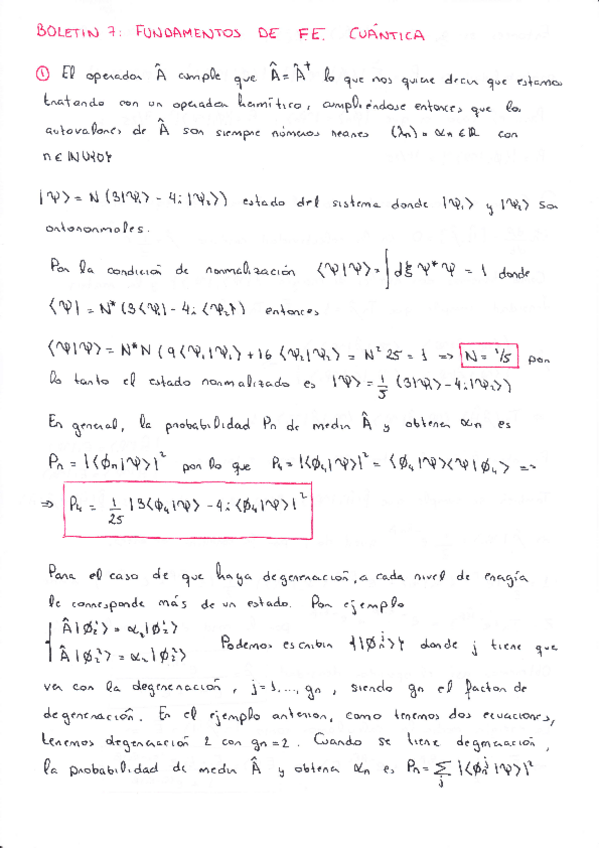 BOLETIN 7: FUNDAMENTOS DE F.E. CUÁNTICA
① El operador Â cumple que Â = Â† lo que nos quiere decir que estamos
tratando con un operador hermítico, cumpliéndose entonces que los
autovalores de Â son siempre números reales (λn) = αn ∈ ℝ con
n ∈ ℕ∪{0}
|Ψ> = N (3|Ψ₁> - 4i|Ψ₂>) estado del sistema donde |Ψ₁> y |Ψ₂> son
ortonormales.
Por la condición de normalización <Ψ|Ψ> = ∫dξ Ψ*Ψ = 1 donde
<Ψ| = N* (3<Ψ₁| - 4i<Ψ₂|) entonces
<Ψ|Ψ> = N*N (9<Ψ₁|Ψ₁> + 16<Ψ₂|Ψ₂> = N² 25 = 1 => N = 1/5 por
lo tanto el estado normalizado es |Ψ> = 1/5 (3|Ψ₁> - 4i|Ψ₂>)
En general, la probabilidad Pn de medir Â y obtener αn es
Pn = |<ϕn|Ψ>|² por lo que P₄ = |<ϕ₄|Ψ>|² = <ϕ₄|Ψ><Ψ|ϕ₄> =>
=> P₄ = 1/25 |3<ϕ₄|Ψ> - 4i<ϕ₄|Ψ>|²
Para el caso de que haya degeneración, a cada nivel de energía
le corresponde más de un estado. Por ejemplo
Â|ϕ₂¹> = α₂|ϕ₂¹>
Â|ϕ₂²> = α₂|ϕ₂²> Podemos escribir {|ϕnʲ>} donde j tiene que
ver con la degeneración, j=1,...,gn, siendo gn el factor de
degeneración. En el ejemplo anterior, como tenemos dos ecuaciones,
tenemos degeneración 2 con gn=2. Cuando se tiene degeneración,
la probabilidad de medir Â y obtener αn es Pn = Σj |<ϕnʲ|Ψ>|²